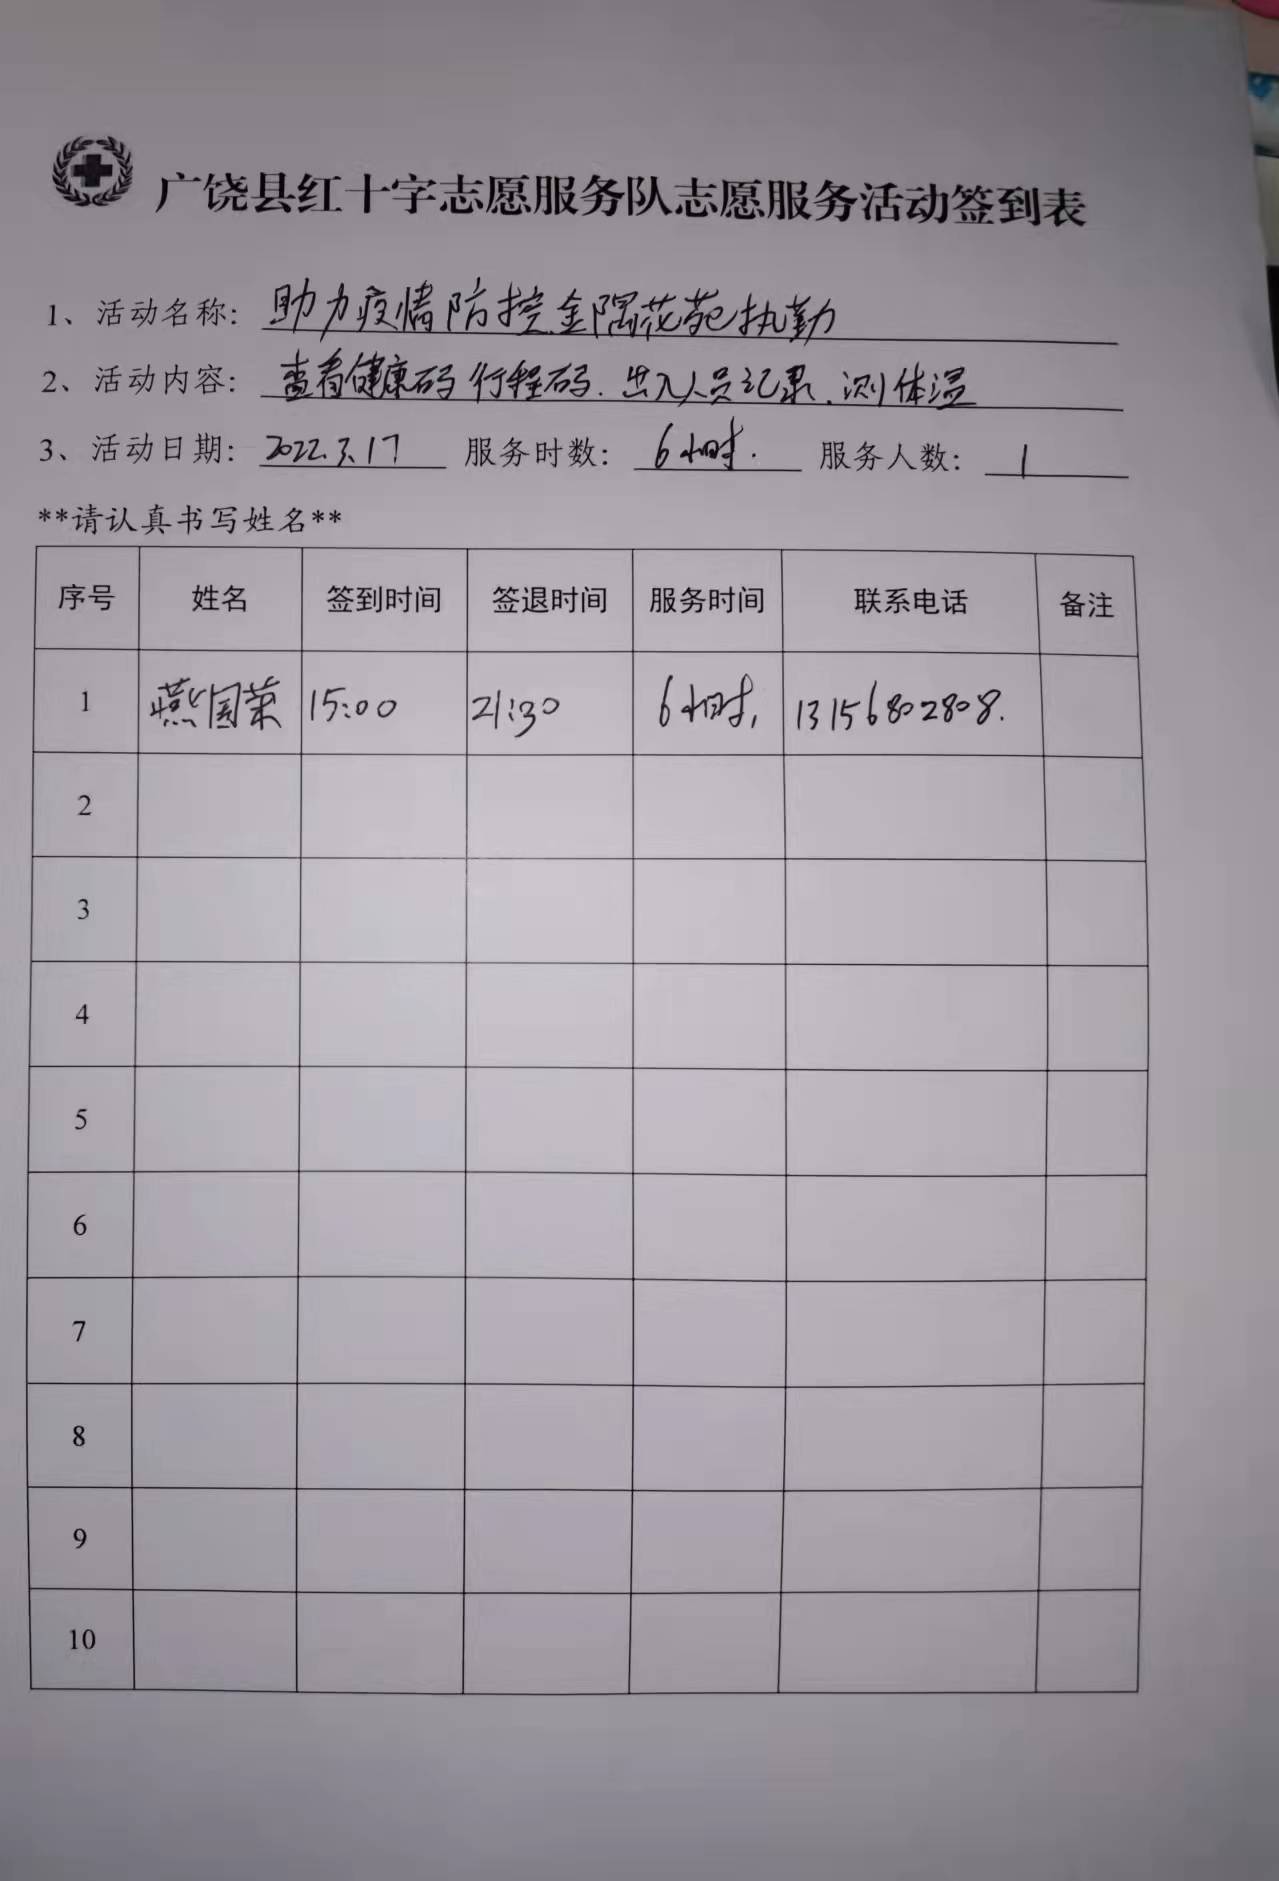 广饶县红十字志愿服务队志愿服务活动签到表
1、活动名称：助力疫情防控金隅花苑执勤
2、活动内容：查看健康码 行程码.出入人员记录.测体温
3、活动日期：2022.3.17 服务时数：6小时. 服务人数：1
**请认真书写姓名**
序号 姓名 签到时间 签退时间 服务时间 联系电话 备注
1 燕国荣 15:00 21:30 6小时, 13156802808.
2
3
4
5
6
7
8
9
10